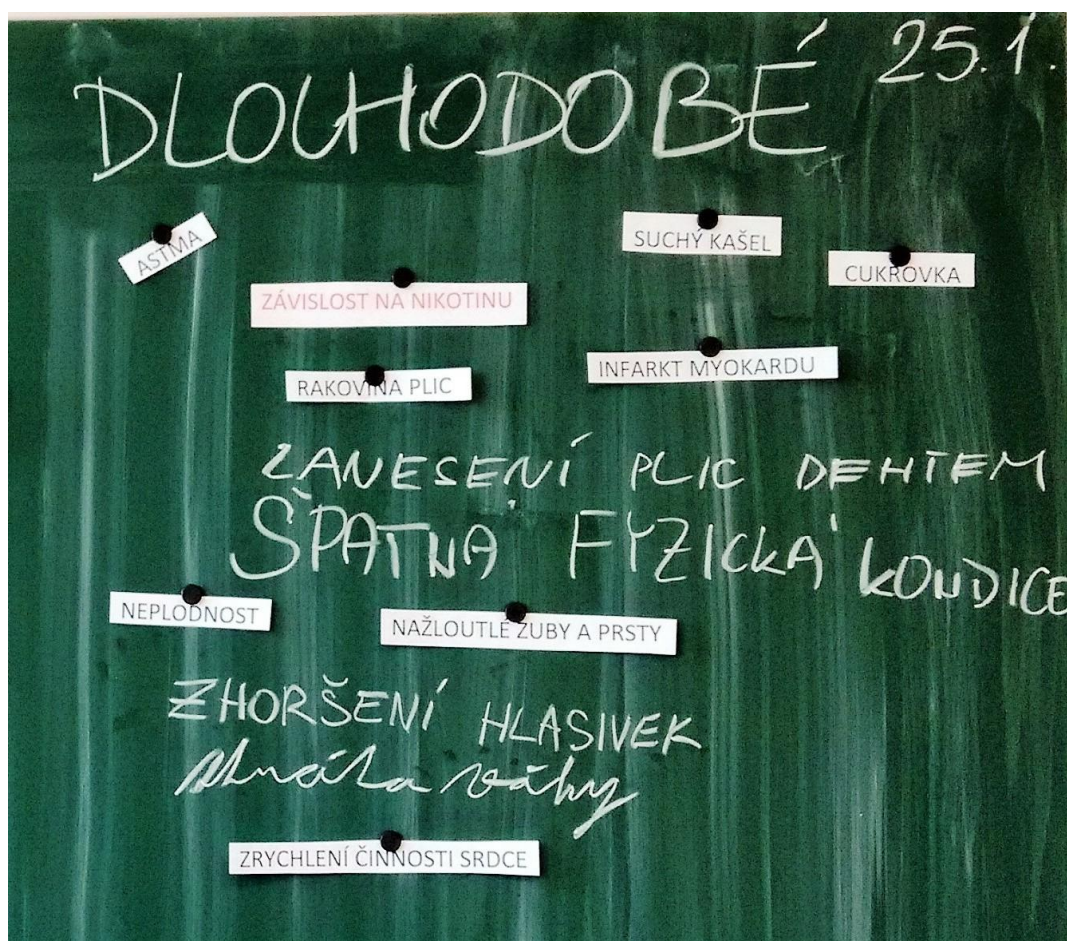 25.1.
DLOUHODOBÉ
ASTMA
SUCHÝ KAŠEL
CUKROVKA
ZÁVISLOST NA NIKOTINU
INFARKT MYOKARDU
RAKOVINA PLIC
ZANESENÍ PLIC DEHTEM
ŠPATNÁ FYZICKÁ KONDICE
NEPLODNOST
NAŽLOUTLÉ ZUBY A PRSTY
ZHORŠENÍ HLASIVEK
ztráta váhy
ZRYCHLENÍ ČINNOSTI SRDCE